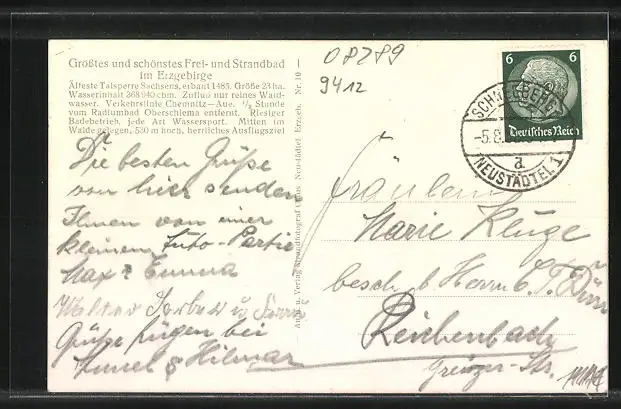 Größtes und schönstes Frei- und Strandbad
im Erzgebirge
Älteste Talsperre Sachsens, erbaut 1485. Größe 23 ha.
Wasserinhalt 368 940 cbm. Zufluß nur reines Wald-
wasser. Verkehrslinie Chemnitz—Aue. ½ Stunde
vom Radiumbad Oberschlema entfernt. Riesiger
Badebetrieb, jede Art Wassersport. Mitten im
Walde gelegen, 530 m hoch, herrliches Ausflugsziel
Die besten Grüße
von hier senden
Ihnen von einer
kleinen Auto-Partie
Max & Emma
Walter
Grüße fügen bei
& Hilmar
Neustädtel Erzgeb. Nr. 10
08289
9412
6 6
Deutsches Reich
SCHNEEBERG
-5.8.
a
NEUSTÄDTEL 1
Fräulein
Marie Kluge
besch. b. Herrn C. T.
Reichenbach
Greizer-Str.